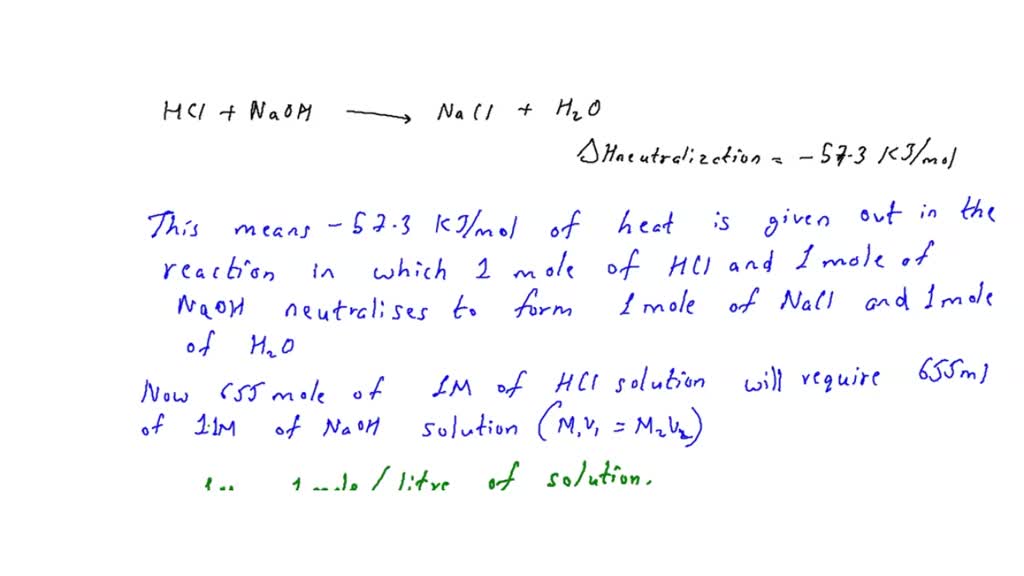 HCl + NaOH → NaCl + H₂O
ΔHneutralizction = -57.3 KJ/mol
This means -57.3 KJ/mol of heat is given out in the
reaction in which 1 mole of HCl and 1 mole of
NaOH neutralises to form 1 mole of NaCl and 1 mole
of H₂O
Now 655 mole of 1M of HCl solution will require 655ml
of 1.1M of NaOH solution (M₁V₁ = M₂V₂)
/litre of solution.